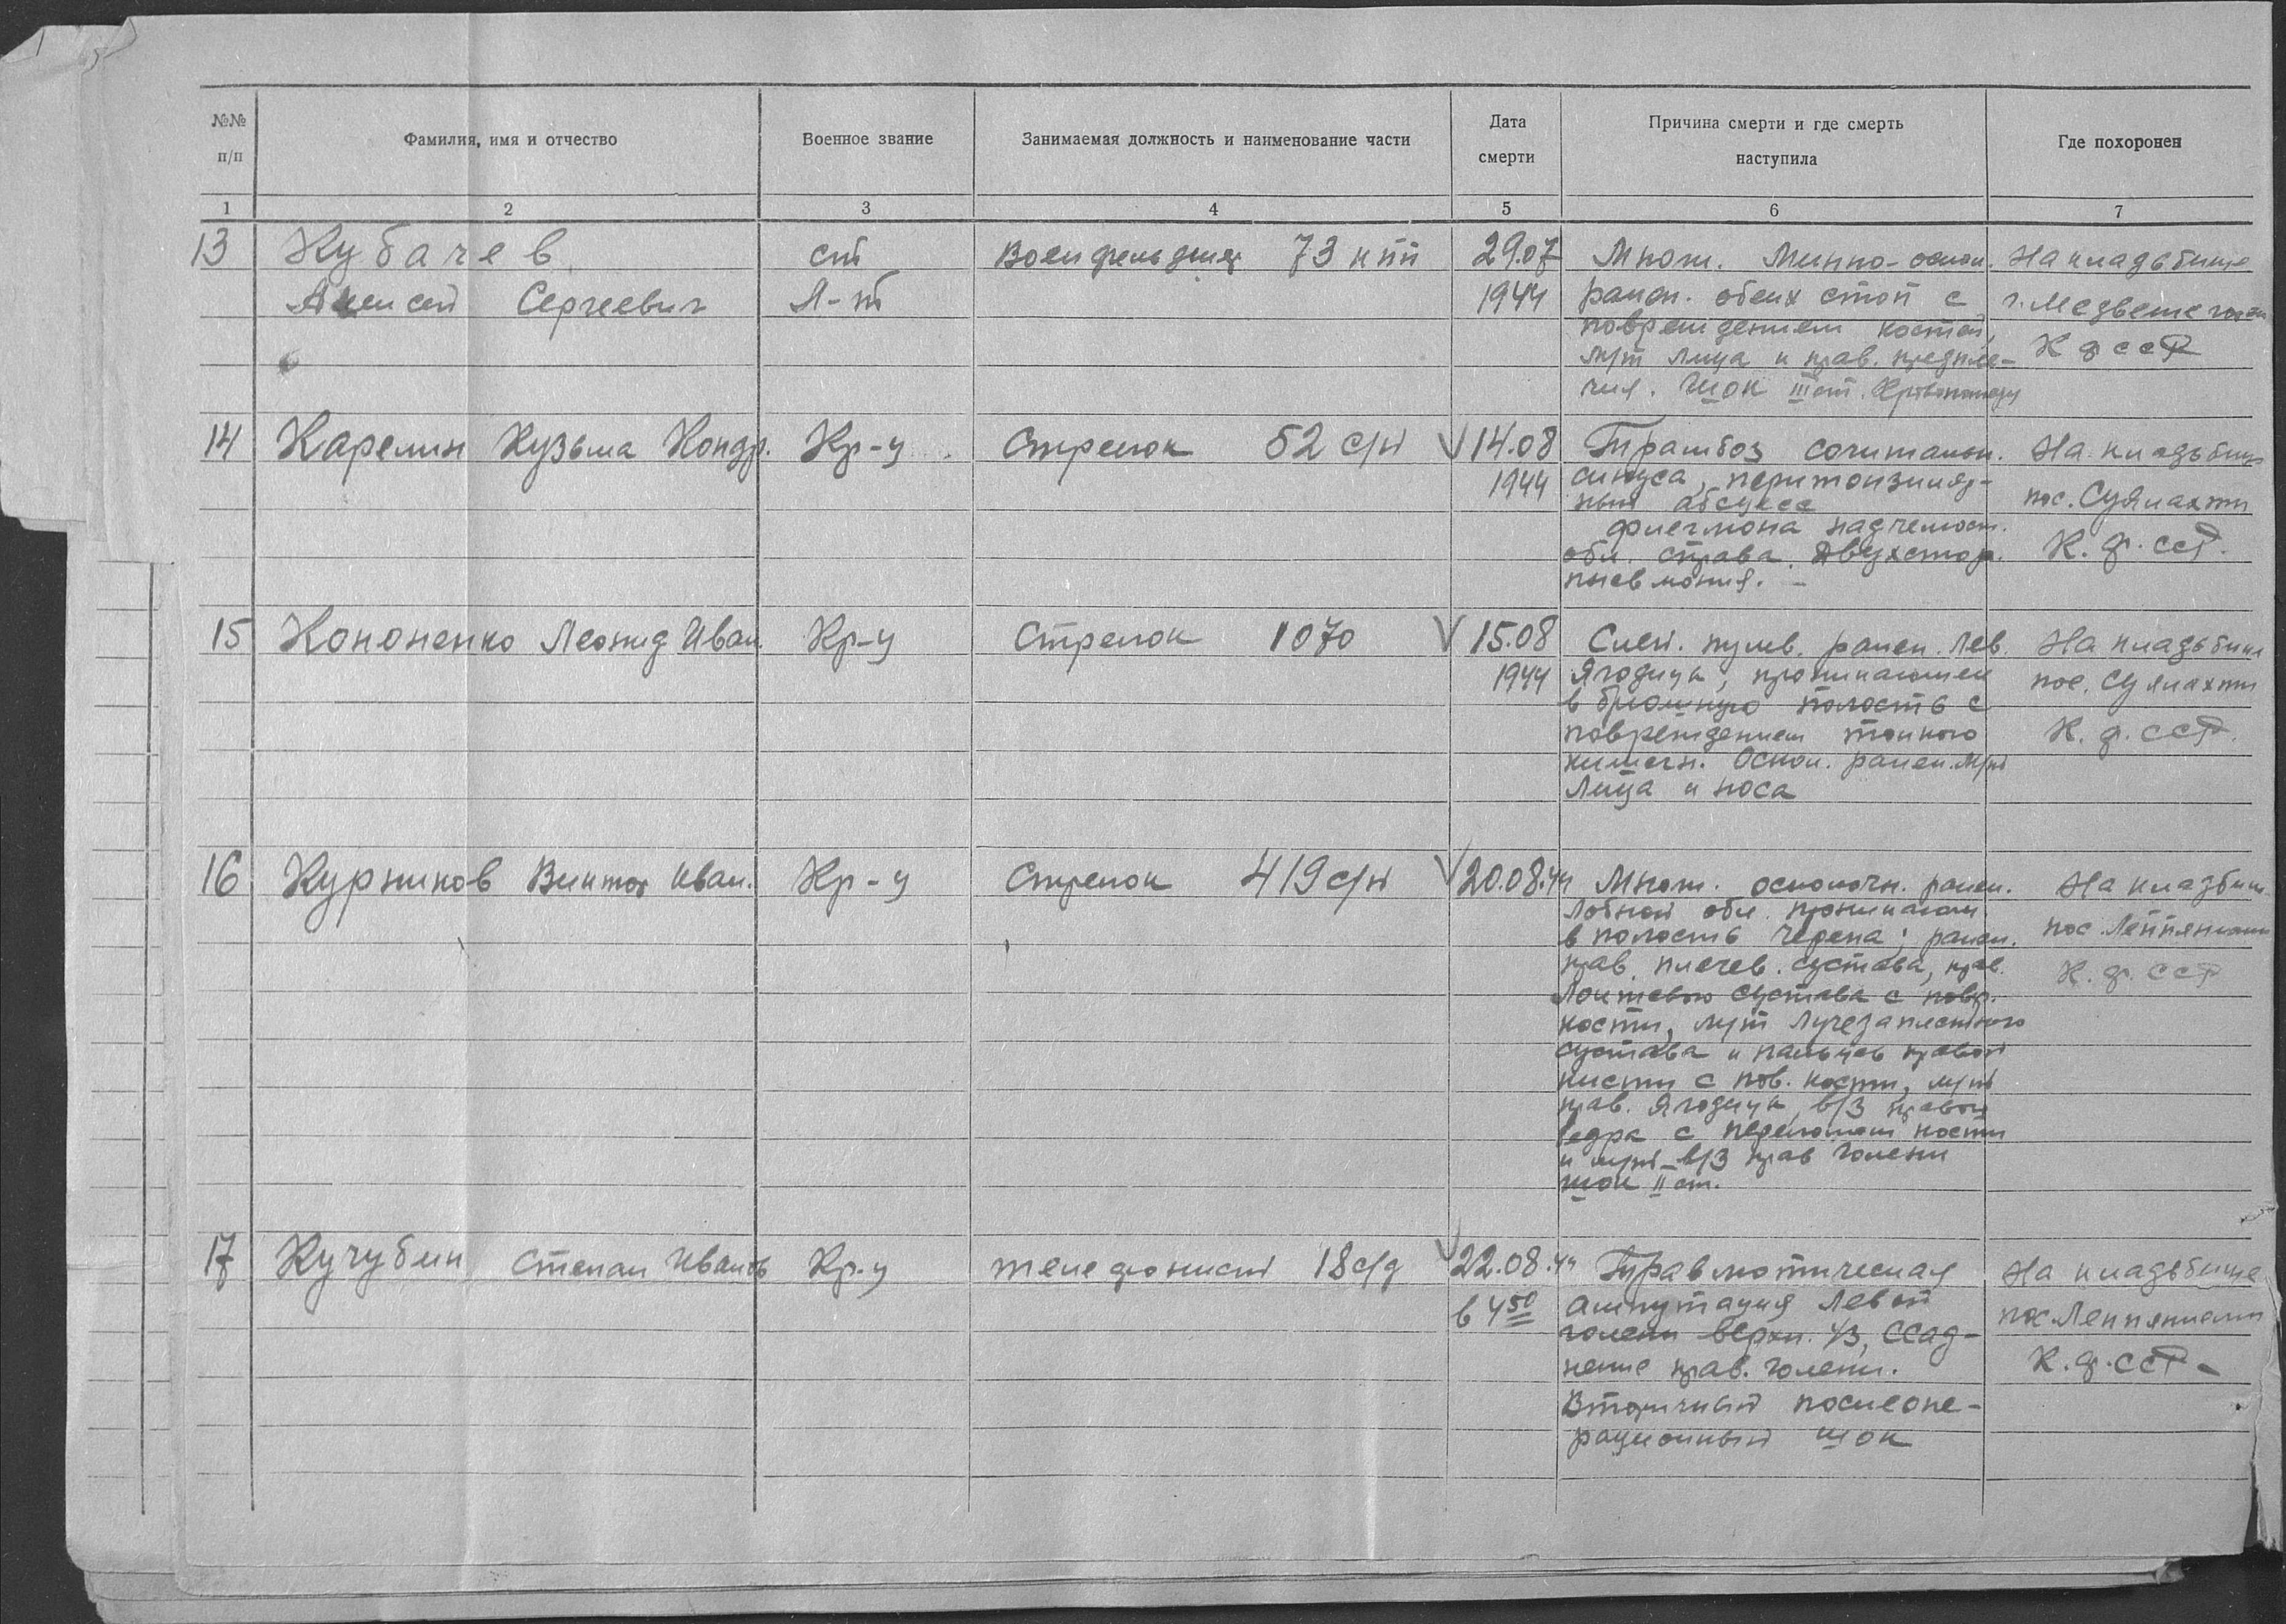 №№ п/п
Фамилия, имя и отчество
Военное звание
Занимаемая должность и наименование части
Дата смерти
Причина смерти и где смерть наступила
Где похоронен
1 2 3 4 5 6 7
13 Кубачев ст Военфельдшер 73 29.07 Множ.
Алексей Сергеевич Л-т 1944
ранен. обеих стоп с
повреждением костей,
м/т лица и прав. предпле-
чия. Шок III ст.
На кладбище
г. Медвежегорск
К ф ССР
14 Карелин Кузьма Кондр. Кр-ц Стрелок 52 с/п 14.08
1944
Трамбоз
синуса,
ный абсцесс
флегмона
обл. справа. Двухстор.
пневмония. –
На кладбище
пос. Суялахти
К. ф. ССР.
15 Кононенко Леонид Иван. Кр-ц Стрелок 1070 15.08
1944
Слеп. пулев. ранен. лев.
Ягодицы, проникающее
в брюшную полость с
повреждением тонкого
кишечн. Оскол. ранен. м/т
Лица и носа
На кладбище
пос. Суялахти
К. ф. ССР.
16 Курников Виктор Иван. Кр-ц Стрелок 419 с/п 20.08.44
Множ. осколочн. ранен.
Лобной обл. проникающ.
в полость черепа; ранен.
прав. плечев. сустава, прав.
Локтевого сустава с повр.
кости, м/т Лучезапястного
сустава и пальцев правой
кисти с пов. кости, м/т
прав. Ягодицы, в/3 правого
бедра с переломом кости
и м/т в/3 прав голени
шок II ст.
На кладбищ.
пос
К. ф. ССР
17 Кучубин Степан Иванов Кр-ц телефонист 18 с/д 22.08.44
в 4 50
Травмотическая
ампутация левой
голени верхн. 1/3, ссад-
нение прав. голени.
Вторичный послеопе-
рационный шок
На кладбище
пос
К. ф. ССР –